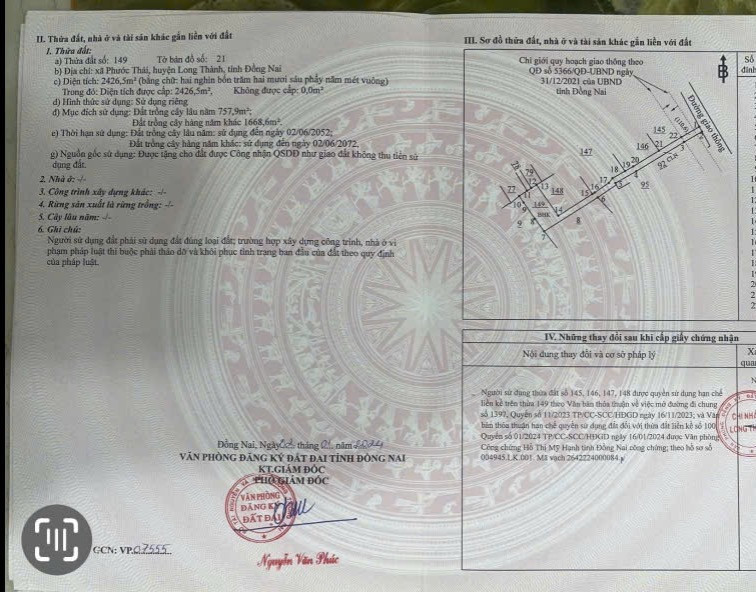 II. Thửa đất, nhà ở và tài sản khác gắn liền với đất
1. Thửa đất:
a) Thửa đất số: 149 Tờ bản đồ số: 21
b) Địa chỉ: xã Phước Thái, huyện Long Thành, tỉnh Đồng Nai
c) Diện tích: 2426,5m² (bằng chữ: hai nghìn bốn trăm hai mươi sáu phẩy năm mét vuông)
Trong đó: Diện tích được cấp: 2426,5m², Không được cấp: 0,0m²
d) Hình thức sử dụng: Sử dụng riêng
đ) Mục đích sử dụng: Đất trồng cây lâu năm 757,9m²;
Đất trồng cây hàng năm khác 1668,6m².
e) Thời hạn sử dụng: Đất trồng cây lâu năm: sử dụng đến ngày 02/06/2052;
Đất trồng cây hàng năm khác: sử dụng đến ngày 02/06/2072.
g) Nguồn gốc sử dụng: Được tặng cho đất được Công nhận QSDĐ như giao đất không thu tiền sử
dụng đất.
2. Nhà ở: -/-
3. Công trình xây dựng khác: -/-
4. Rừng sản xuất là rừng trồng: -/-
5. Cây lâu năm: -/-
6. Ghi chú:
Người sử dụng đất phải sử dụng đất đúng loại đất; trường hợp xây dựng công trình, nhà ở vi
phạm pháp luật thì buộc phải tháo dỡ và khôi phục tình trạng ban đầu của đất theo quy định
của pháp luật.
Đồng Nai, Ngày tháng 01 năm 2024
VĂN PHÒNG ĐĂNG KÝ ĐẤT ĐAI TỈNH ĐỒNG NAI
KT.GIÁM ĐỐC
PHÓ GIÁM ĐỐC
VĂN PHÒNG
ĐĂNG KÝ
ĐẤT ĐAI
Nguyễn Văn Phúc
GCN: VP.07555
III. Sơ đồ thửa đất, nhà ở và tài sản khác gắn liền với đất
Chỉ giới quy hoạch giao thông theo
QĐ số 5366/QĐ-UBND ngày
31/12/2021 của UBND
tỉnh Đồng Nai
B
Số
đỉnh
Đường giao thông
(110,6)
145
22
146
21
147
20
19
18
17
16
15
3
4
92 CLN
95
6
28
79
12
13
148
22
11
10
149
14
9
9
8
7
8
IV. Những thay đổi sau khi cấp giấy chứng nhận
Nội dung thay đổi và cơ sở pháp lý
Người sử dụng thửa đất số 145, 146, 147, 148 được quyền sử dụng hạn chế
liền kề trên thửa 149 theo Văn bản thỏa thuận về việc mở đường đi chung
số 1397, Quyển số 11/2023 TP/CC-SCC/HĐGD ngày 16/11/2023; và Văn
bản thỏa thuận hạn chế quyền sử dụng đất đối với thửa đất liền kề số 100
Quyển số 01/2024 TP/CC-SCC/HĐGD ngày 16/01/2024 được Văn phòng
Công chứng Hồ Thị Mỹ Hạnh tỉnh Đồng Nai công chứng; theo hồ sơ số
004945.LK.001. Mã vạch 2642224000084
CHI NHÁ
LONG TH